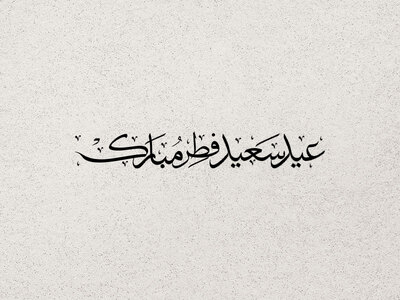 عید سَعید فِطر مُبارَک